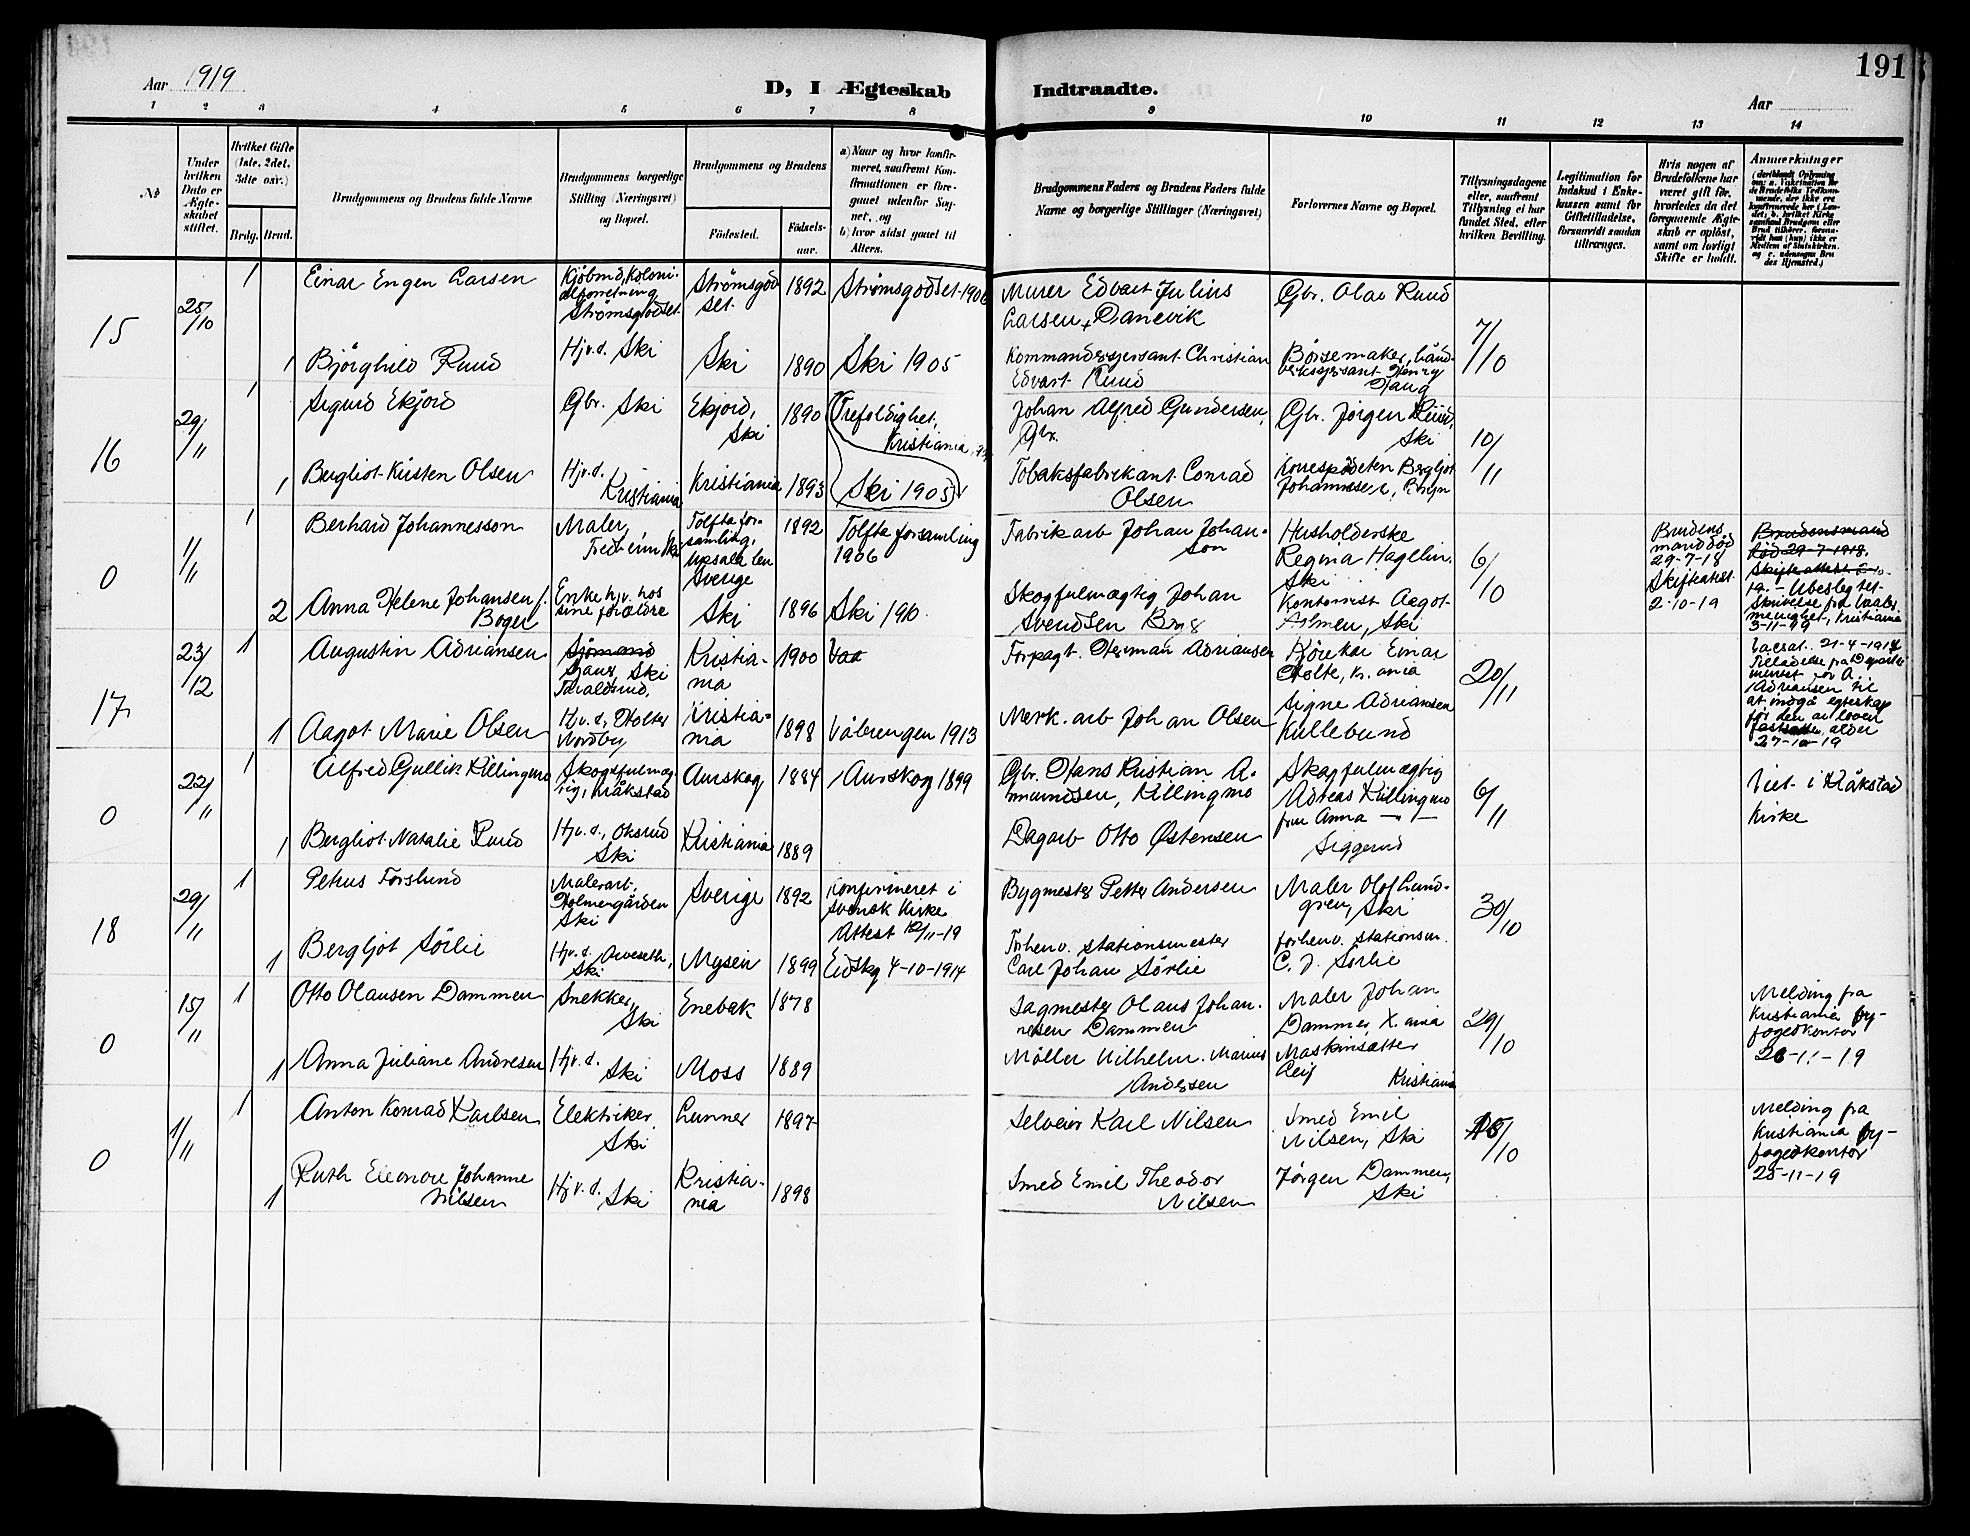 191
Aar 1919
D, I Ægteskab Indtraadte.
Aar
1 2 3 4 5 6 7 8 9 10 11 12 13 14
No
Under
hvilken
Dato er
Ægte-
skabet
stiftet.
Hvilket Gifte
(1ste, 2det,
3dte osv.)
Brdg. Brud.
Brudgommens og Brudens fulde Navne
Brudgommens borgerlige
Stilling (Næringsvei)
og Bopæl.
Brudgommens og Brudens
Fødested.
Fødsels-
aar.
a) Naar og hvor konfir-
meret, saafremt Kon-
firmationen er fore-
gaaet udenfor Sog-
net, og
b) hvor sidst gaaet til
Alters.
Brudgommens Faders og Brudens Faders fulde
Navne og borgerlige Stillinger (Næringsvei)
Forlovernes Navne og Bopæl.
Tillysningsdagene
eller, saafremt
Tillysning ei har
fundet Sted, efter
hvilken Bevilling.
Legitimation for
Indskud i Enke-
kassen samt for
Giftetilladelse,
forsaavidt saadan
tiltrænges.
Hvis nogen af
Brudefolkene har
været gift før,
hvorledes da det
foregaaende Ægte-
skab er opløst,
samt om lovligt
Skifte er holdt.
Anmærkninger
15
25/10
1
Einar Engen Larsen
Kjøbmd, Koloni-
alforretning
Strømsgodset
Strømsgod
set.
1892
Strømsgodset 1906
Murer Edvart Julius
Larsen, Danevik
Gbr. Olav Ruud
7/10
1
Bjørghild Ruud
Hjv.d. Ski
Ski
1890
Ski 1905
Kommandersersant Christian
Edvart Ruud
Børsemaker, hånd-
verkssersant Henry
Haug
16
29/11
1
Sigurd Ekjord
Gbr. Ski
Ekjord,
Ski
1890
Trefoldighet,
Kristiania
Johan Alfred Gundersen,
Gbr.
Gbr. Jørgen Ruud,
Ski
10/11
1
Bergliot Kirsten Olsen
Hjv.d.
Kristiania
Kristiania
1893
Ski 1905
Tobaksfabrikant Conrad
Olsen
Bergljot
0
1/11
1
Berhard Johannesson
Maler,
Fredheim Ski
Tolfta for-
samling,
Upsala len
Sverige
1892
Tolfta forsamling
1906
Fabrikarb Johan Johan-
son
Husholderske
Regina Hagelin
Ski
6/10
Brudens
mand død
29-7-18
Skifteattest
2-10-19
Brudens mand
død 29-7-1918.
Skifteattest
3-11-19
2
Anna Helene Johansen f.
Boger
Enke hjv. hos
sine forældre
Ski
1896
Ski 1910.
Skogfulmægtig Johan
Svendsen
Kontorist Aagot
Almen, Ski
17
23/12
1
Augustin Adriansen
Sjømand
Ski
Kristia-
nia
1900
Vaa
Forpagt. Herman Adriansen
Kjørekar Einar
Holte, Kr.ania
20/11
Vacsat. 21-4-1914
Tilladelse fra Departe
mentet for A.
Adriansen til
at indgå egteskap
før den av loven
fastsatte alder
27-10-19
1
Aagot Marie Olsen
Hjv.d, Holter
Nordby
Kristia-
nia
1898
Vålerengen 1913
Merk.arb Johan Olsen
Signe Adriansen
Kullebund
0
22/11
1
Alfred Gullik Killingmo
Skogsfulmæg-
tig, Kråkstad
Aurskog
1884
Aurskog 1899
Gbr. Hans Kristian A-
mundsen, Killingmo
Skogfulmægtig
Adreas Killingmo
fru Anna — " —
Siggerud
6/11
Viet i Kråkstad
Kirke
1
Bergliot Natalie Ruud
Hjv.d., Oksrud
Ski
Kristiania
1889
Dagarb Otto Østensen
18
29/11
1
Petrus Forslund
Malerarb,
Holmengården
Ski
Sverige
1892
Konfirmeret i
Svensk Kirke
Attest 12/11-19
Bygmester Petter Andersen
Maler Olof Lund-
gren, Ski
30/10
1
Bergljot Sørlie
Hjv.d.
Ski
Mysen
1899
Eidskg 4-10-1914
Forhenv. stationsmester
Carl Johan Sørlie
forhenv. stationsm.
C. J. Sørlie
0
15/11
1
Otto Olausen Dammen
Snekker,
Ski
Enebak
1878
Sagmester Olaus Johan-
nesen Dammen
Maler Johan
Dammen, Kr.ania
29/10
Melding fra
Kristiania by-
fogedkontor
26-11-19
1
Anna Juliane Andresen
Hjv.d.
Ski
Moss
1889
Møller Vilhelm Marius
Andersen
Maskinsætter
Leif Kristiania
0
1/11
1
Anton Konrad Karlsen
Elektriker
Ski
Lunner
1897
Selveier Karl Nilsen
Smed Emil
Nilsen, Ski
15/10
Melding fra
Kristiania by-
fogedkontor
25-11-19
1
Ruth Eleonore Johanne
Nilsen
Hjv.d.
Ski
Kristia-
nia
1898
Smed Emil Theodor
Nilsen
Jørgen Dammen,
Ski